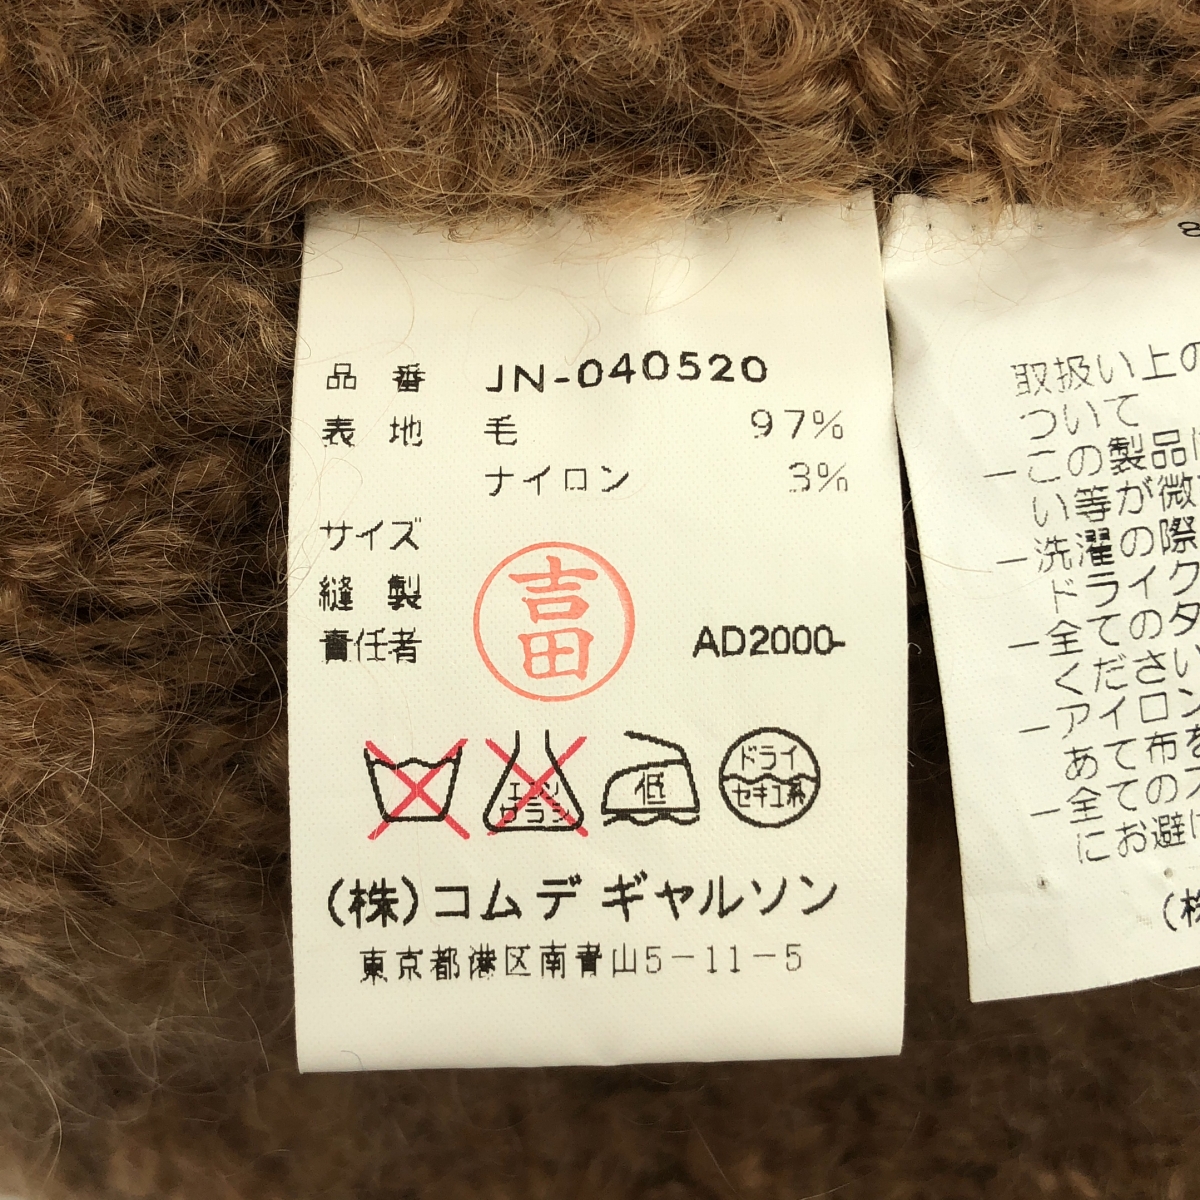 品番 JN-040520
表地 毛 97%
ナイロン 3%
サイズ
縫製
責任者
吉田
AD2000-
エンソ
サラシ
低
ドライ
セキユ系
(株)コム デ ギャルソン
東京都港区南青山5-11-5
8
取扱い上の
ついて
-この製品は
い等が微
-洗濯の際
ドライク
-全てのタ
ください
-アイロン
あて布を
-全ての
にお避け
(株